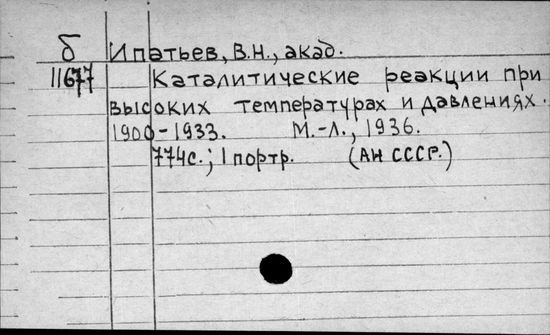 б Ипатьев, В.Н., акад.
11677 Каталитические реакции при
высоких температурах и давлениях.
1900-1933. М.-Л., 1936.
774с.; 1 портр. (АН СССР.)